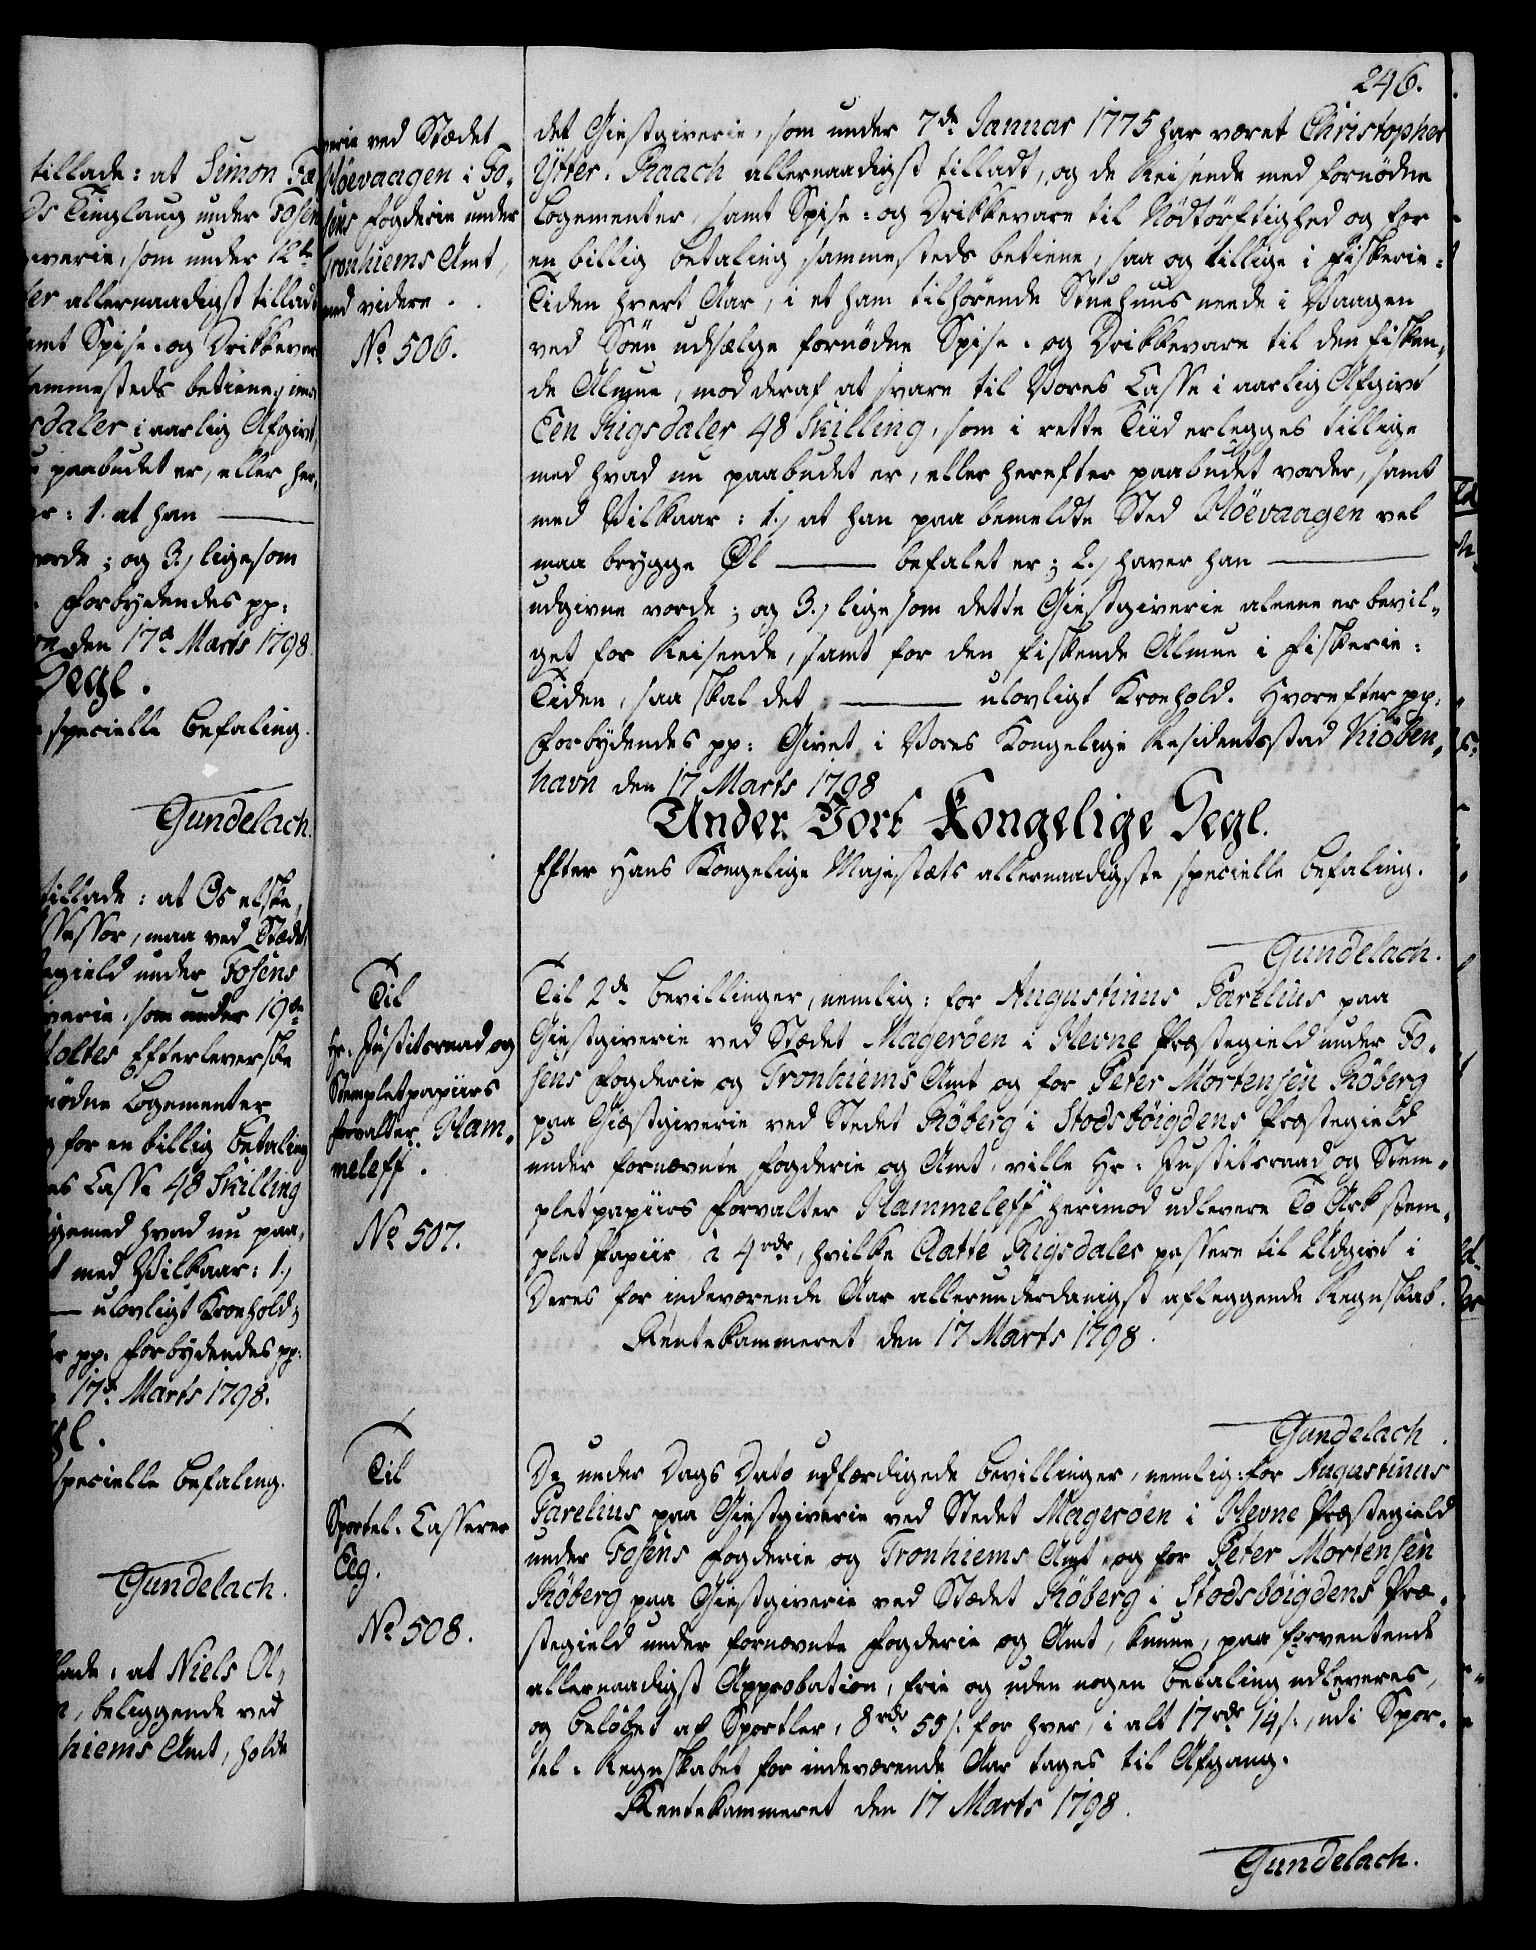 246.
tillade: at Simon Fæ
ds Tinglaug under Fosen
iverie, som under 12te
er allernaadigst tilladt
amt Spise- og Drikkevar
sammesteds betiene, imod
sdaler i aarlig Afgivt
paabudet er, eller her,
r: 1. at han ———
vorde; og 3.) ligesom
Forbydendes pp:
den 17de Marts 1798.
Segl.
specielle Befaling.
Gundelach.
tillade: at Os elske,
ssessor, maa ved Stædet
egield under Fosens
iverie, som under 19de
Efterleverske
nödne Logementer
for en billig Betaling
es Casse 48 Skilling
igemed hvad nu paa,
t med Vilkaar: 1.)
— ulovligt Kroehold;
r pp. Forbydendes pp:
17de Marts 1798.
gl.
specielle Befaling.
Gundelach.
lade, at Niels Ol-
, beliggende ved
hiems Amt, holde
verie ved Stædet
Höevaagen i Fo-
sens Fogderie under
Tronhiems Amt,
med videre.
No 506.
det Giestgiverie, som under 7de Januar 1775 har været Christopher
Ytter-Raach allernaadigst tilladt, og de Reisende med fornödne
Logementer, samt Spise- og Drikkevare til Nödtörftighed og for
en billig Betaling sammesteds betiene, saa og tillige i Fiskerie-
Tiden hvert Aar, i et ham tilhörende Stuehuus neede i Vaagen
ved Söen udsælge fornödne Spise- og Drikkevare til den fisken,
de Almue, mod deraf at svare til Vores Casse i aarlig Afgivt
Een Rigsdaler 48 Skilling, som i rette Tiid erlegges tillige
med hvad nu paabudet er, eller herefter paabudet vorder, samt
med Vilkaar: 1.) at han paa bemeldte Sted Höevaagen vel
maa brygge Øl ——— befalet er; 2.) haver han ———
udgivne vorde; og 3.) ligesom dette Giestgiverie aleene er bevil-
get for Reisende, samt for den fiskende Almue i Fiskerie-
Tiden, saa skal det ——— ulovligt Kroehold. Hvorefter pp.
Forbydendes pp: Givet i Vores Kongelige Residentsstad Kiöben-
havn den 17 Marts 1798
Under Vort Kongelige Segl.
Efter Hans Kongelige Majestæts allernaadigste specielle Befaling.
Gundelach.
Til
Hr. Justitsraad og
Stempletpapiirs
Forvalter Ham-
meleff.
No 507.
Til 2de Bevillinger, nemlig: for Augustinus Parelius paa
Giestgiverie ved Stædet Magerøen i Hevne Præstegield under Fo-
sens Fogderie og Tronhiems Amt og for Peter Mortensen Röberg
paa Giæstgiverie ved Stedet Röberg i Stodsböigdens Præstegield
under fornævnte Fogderie og Amt, ville Hr. Justitsraad og Stem-
pletpapiirs Forvalter Hammeleff herimod udlevere To Ark stem-
plet Papiir à 4rdr, hvilke Aatte Rigsdaler passere til Udgivt i
Deres for indeværende Aar allerunderdanigst aflæggende Regnskab.
Rentekammeret den 17 Marts 1798.
Gundelach.
Til
Sportel-Casserer
Eeg.
No 508.
De under Dags Dato udfærdigede Bevillinger, nemlig: for Augustinus
Parelius paa Giestgiverie ved Stedet Magerøen i Hevne Præstegield
under Fosens Fogderie og Tronhiems Amt, og for Peter Mortensen
Röberg paa Giestgiverie ved Stædet Röberg i Stodsböigdens Præ-
stegield under fornævnte Fogderie og Amt, kunne, paa forventende
allernaadigst Approbation, frie og uden nogen Betaling udleveres,
og Belöbet af Sportler, 8rdr 55/. for hver, i alt 17rdr 14/., udi Spor-
tel-Regnskabet for indeværende Aar tages til Afgang.
Rentekammeret den 17 Marts 1798.
Gundelach.